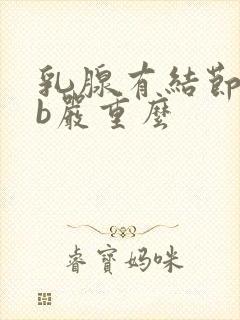 乳腺有結節
b嚴重麼
睿寶媽咪